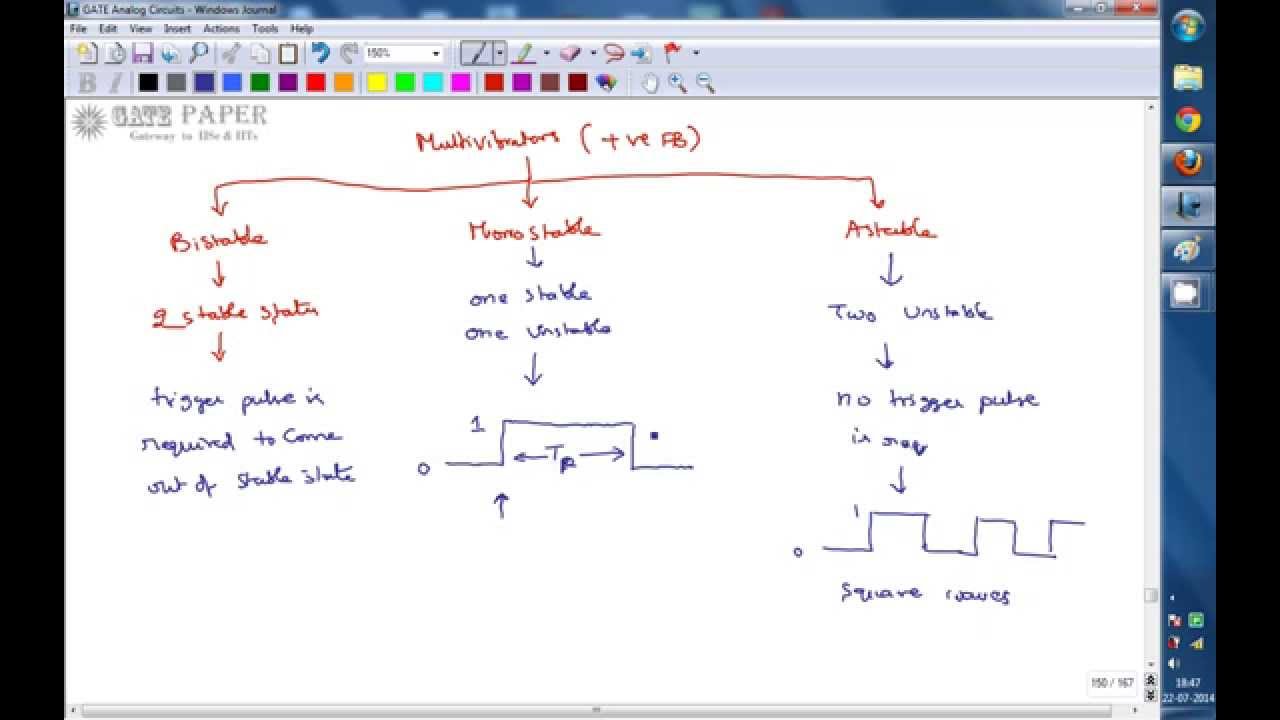 GATE Analog Circuits - Windows Journal
File Edit View Insert Actions Tools Help
150%
B I
GATE PAPER
Gateway to IISc & IITs
Multivibrators (+ve FB)
Bistable
Monostable
Astable
2 stable states
one stable
one unstable
Two Unstable
trigger pulse is
required to Come
out of stable state
1
0
Tp
no trigger pulse
is req
1
0
square waves
150 / 167
18:47
22-07-2014